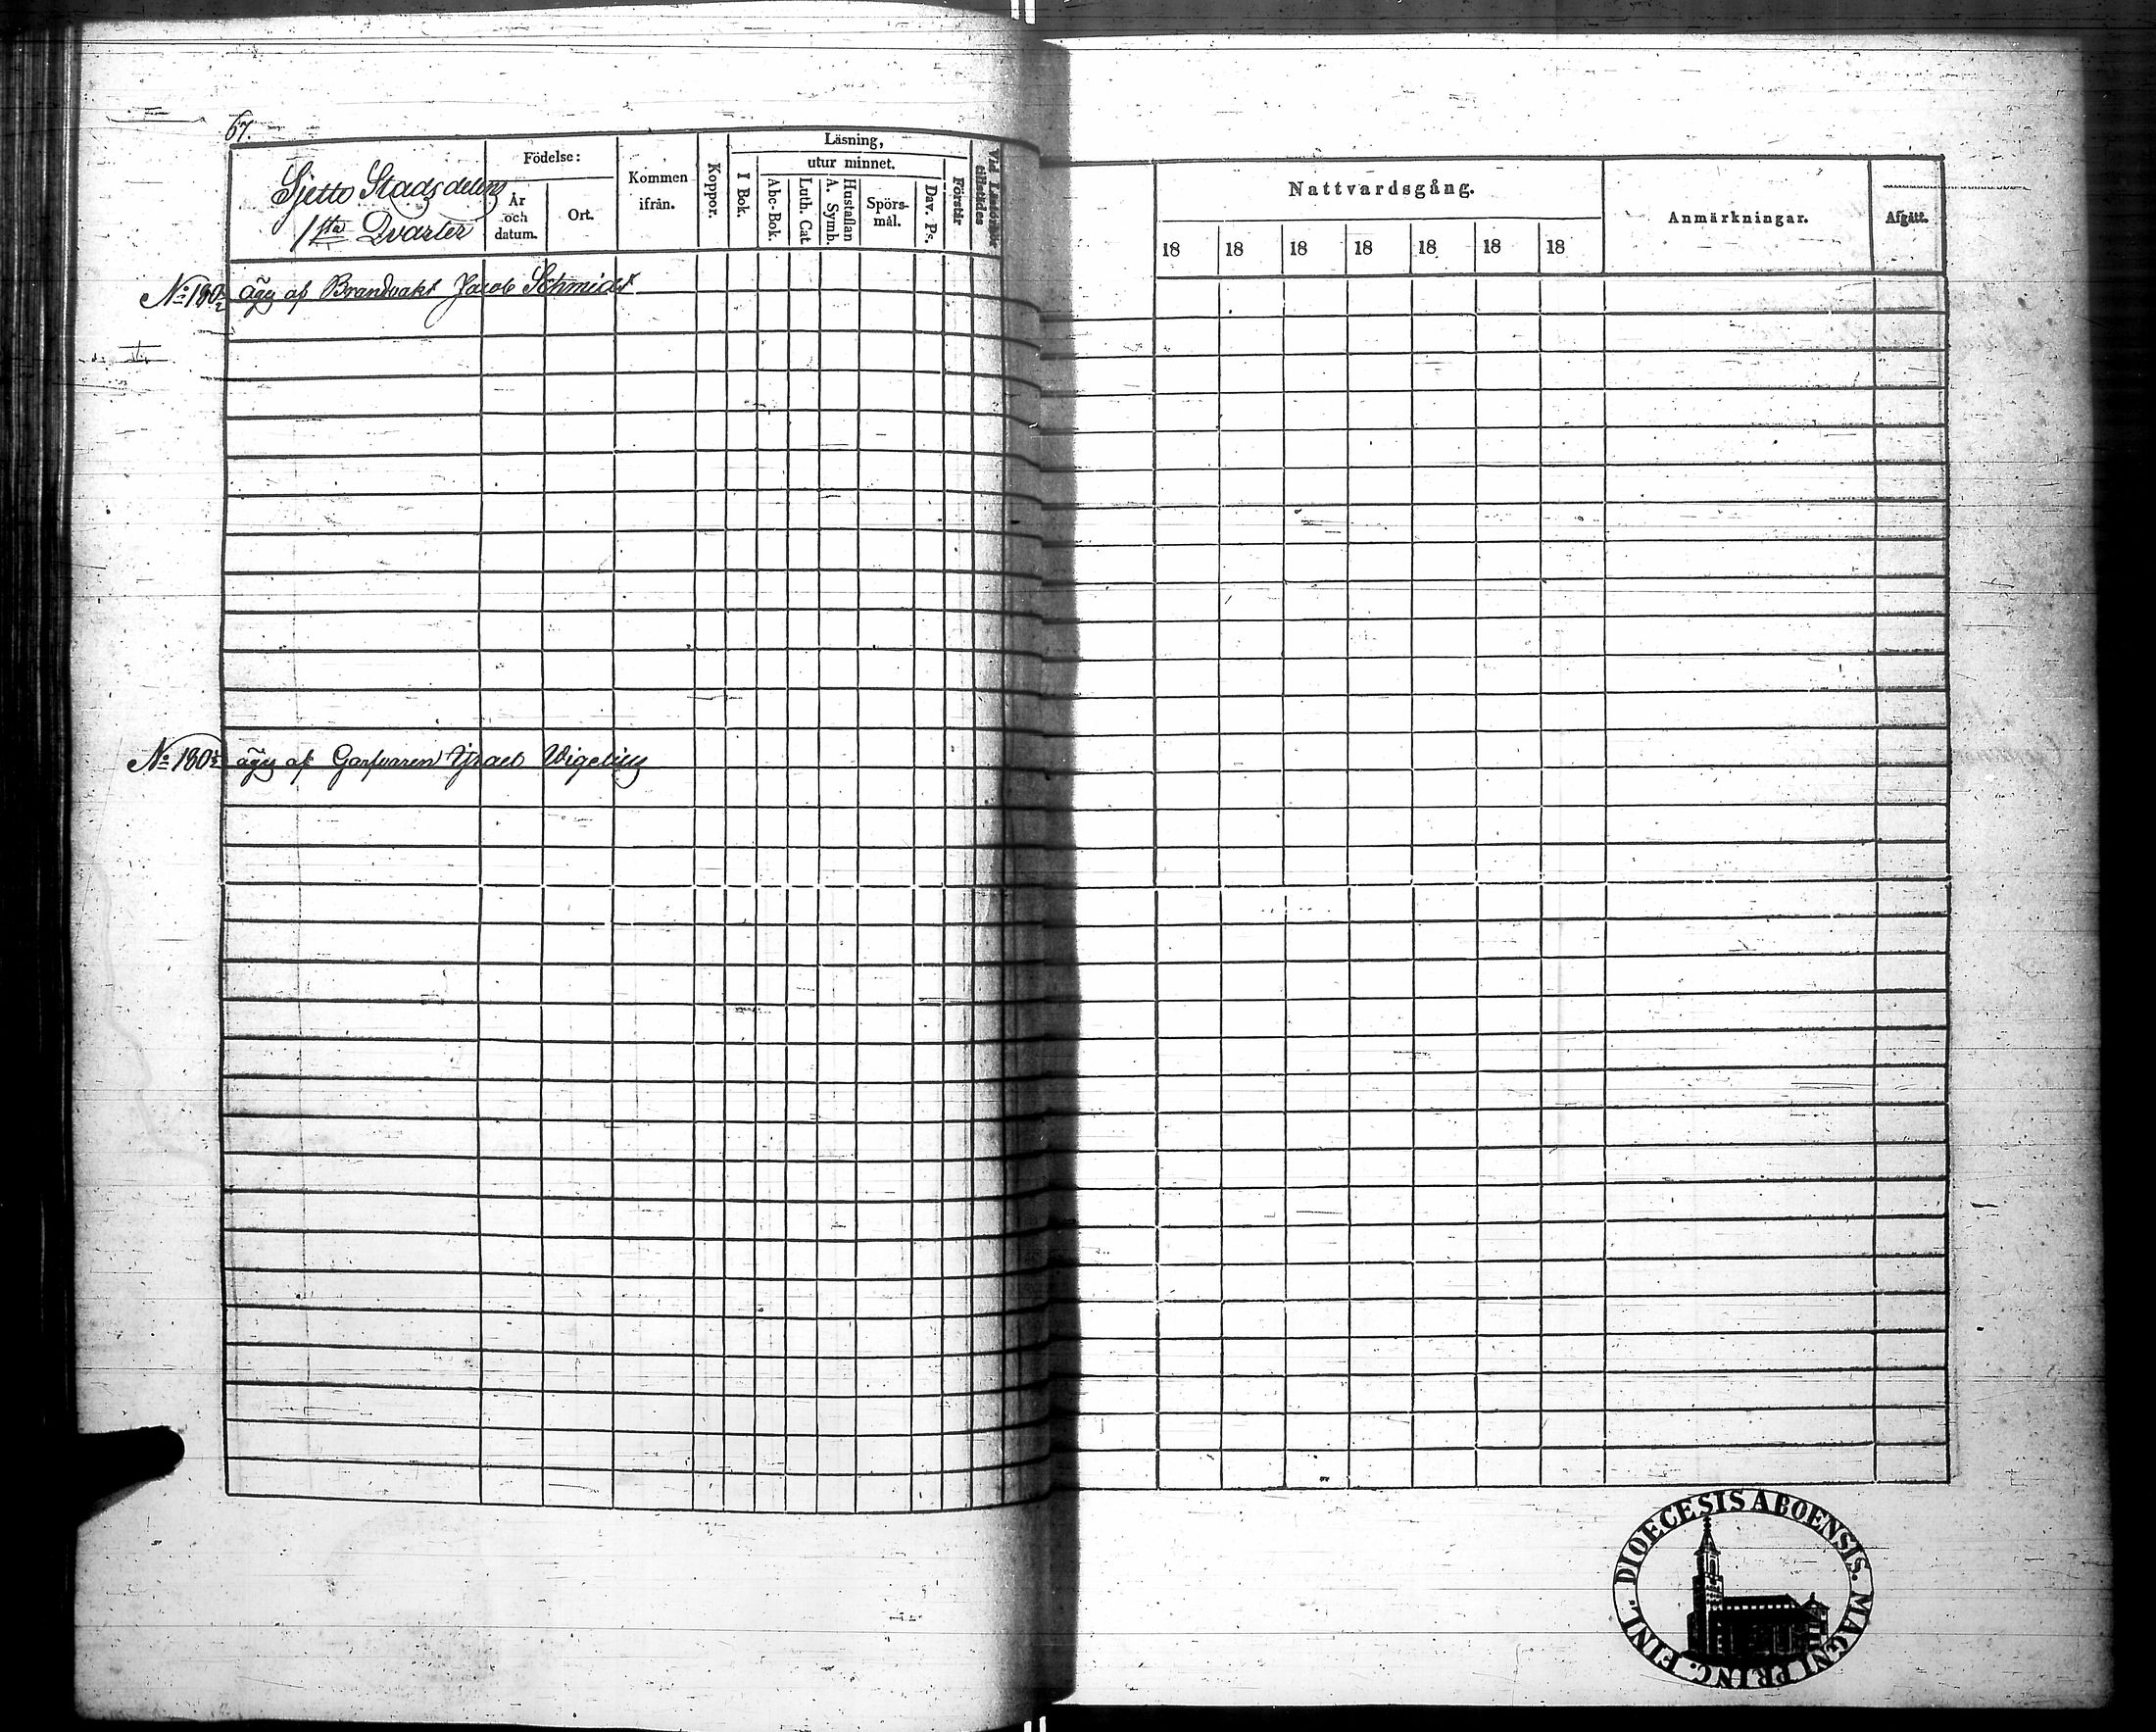 67.
Sjette Stadsdelens
1sta Qvarter
Födelse:
År och datum.
Ort.
Kommen ifrån.
Koppor.
Läsning,
utur minnet.
I Bok.
Abc-Bok.
Luth. Cat
Hustaflan A. Symb.
Spörs-mål.
Dav. Ps.
Förstår
Vid Läsförhör tillstädes
Nattvardsgång.
18 18 18 18 18 18 18
Anmärkningar.
Afgått.
äges af Brandvakt Jacob Schmidt
äges af Garfvaren Israel Vigelius
DIOECESIS ABOENSIS. MAGNI PRINC. FINL.